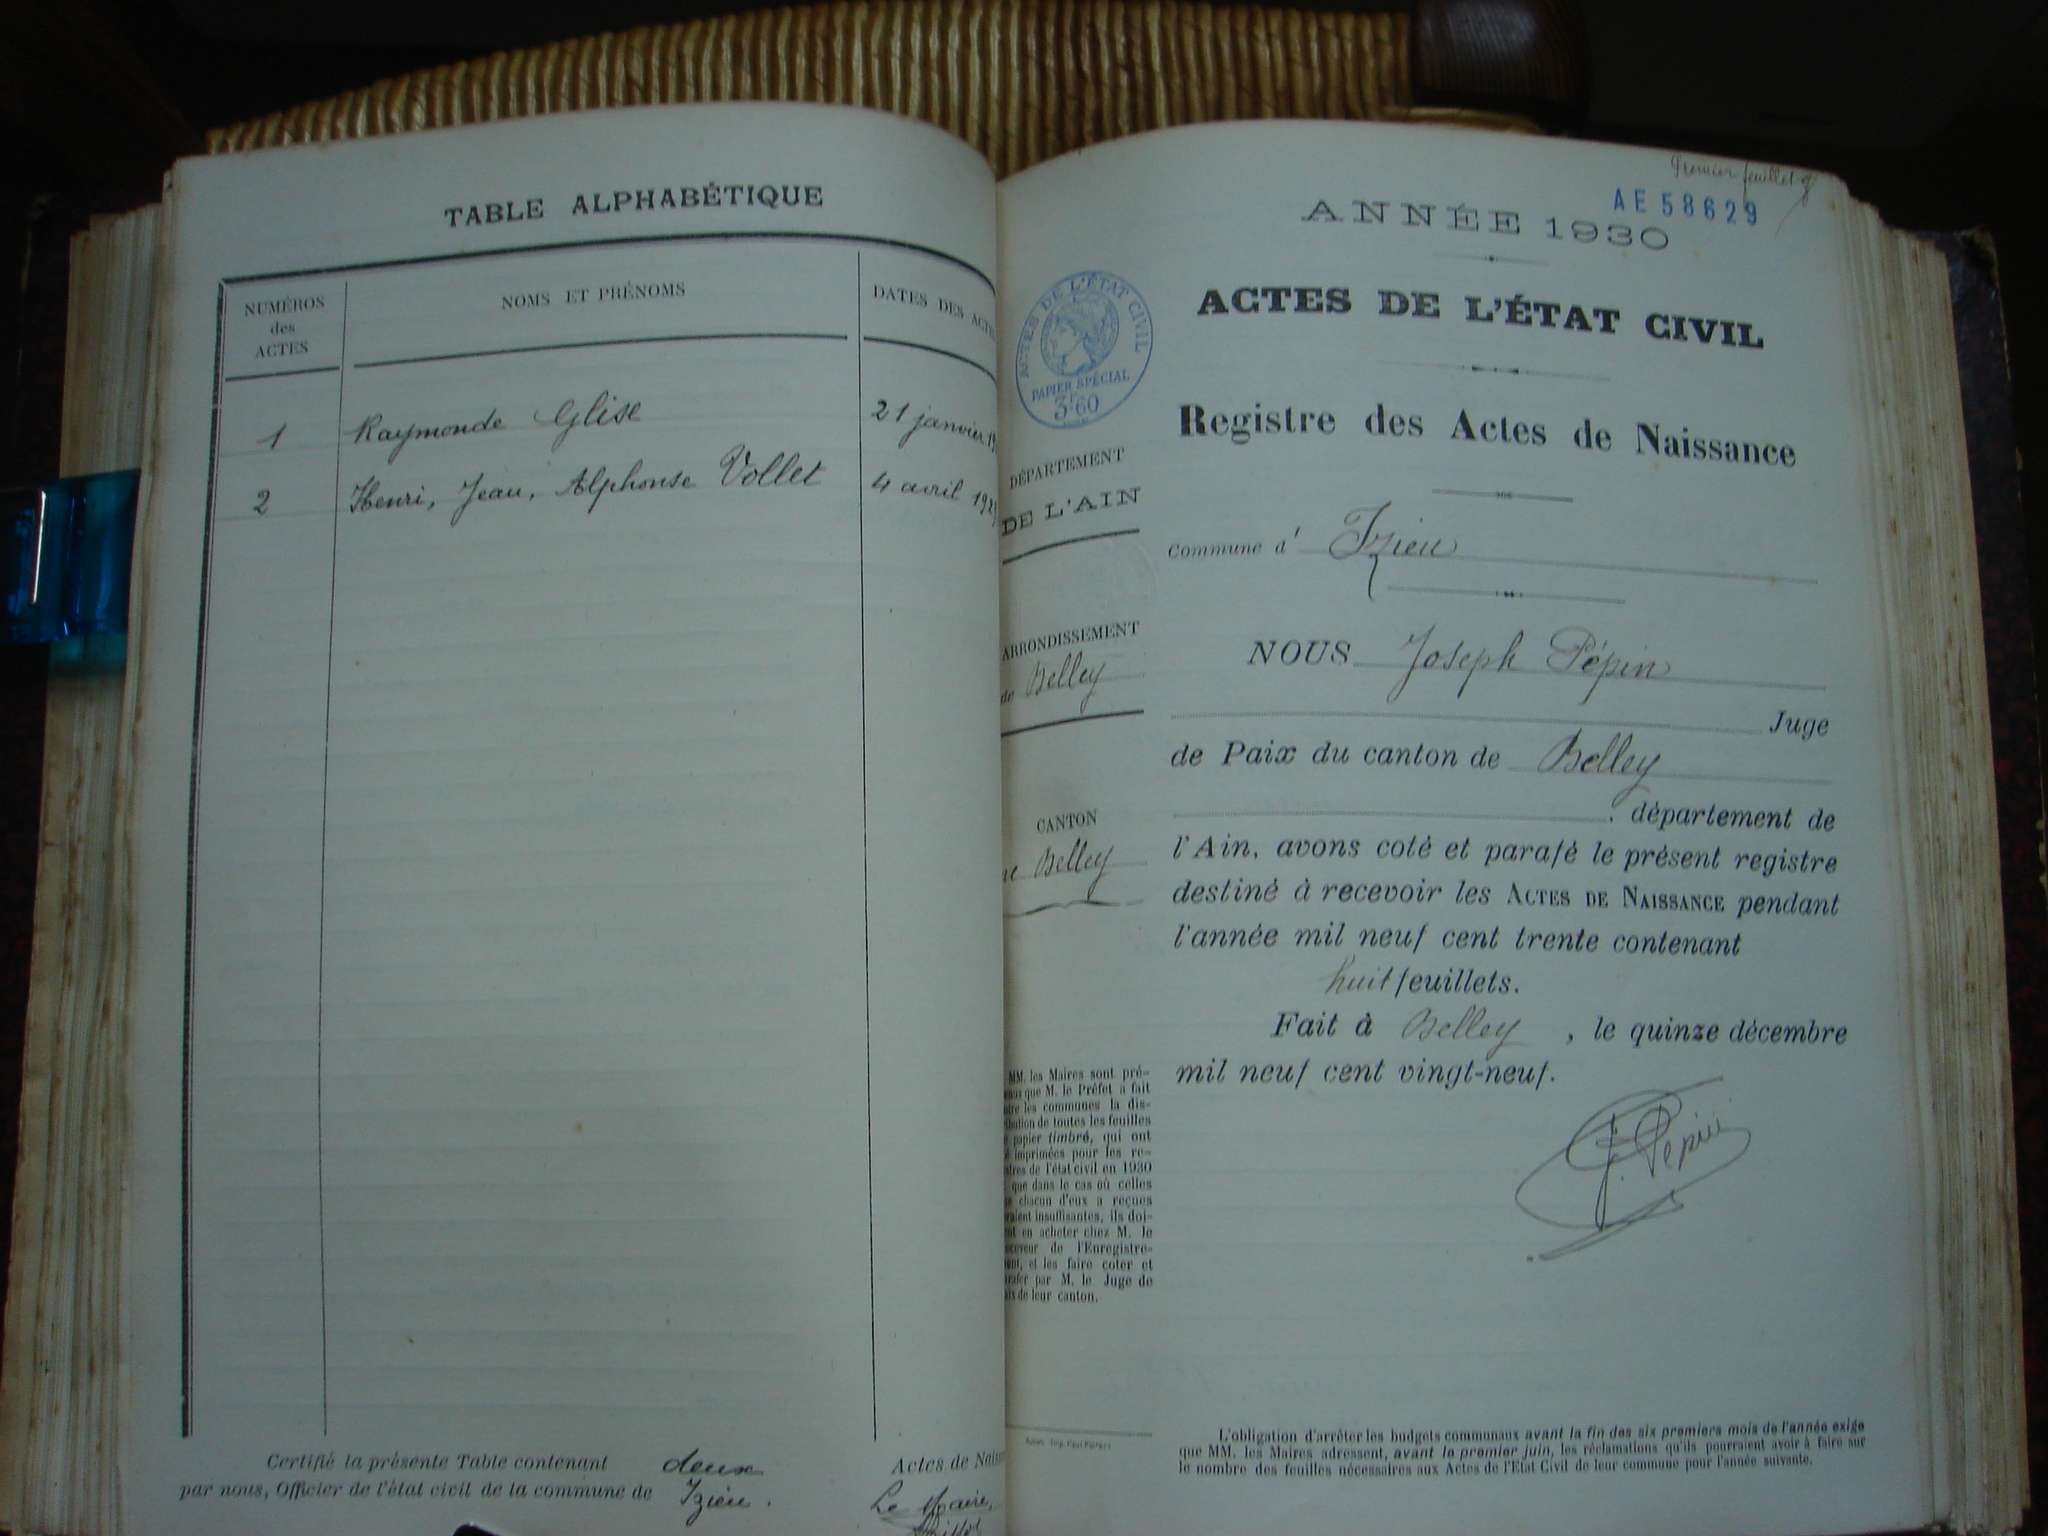 TABLE ALPHABÉTIQUE
NUMÉROS
des
ACTES
NOMS ET PRÉNOMS
DATES DES ACTES
1 Raymonde Glise 21 janvier
2 Henri, Jean, Alphonse Vollet 4 avril
Certifié la présente Table contenant deux Actes de
par nous, Officier de l'état civil de la commune de Izieu.
Le Maire,
Premier feuillet
AE 58629
ANNÉE 1930
ACTES DE L'ÉTAT CIVIL
PAPIER SPÉCIAL
3F60
ACTES DE L'ÉTAT CIVIL
Registre des Actes de Naissance
DÉPARTEMENT
DE L'AIN
Commune d' Izieu
ARRONDISSEMENT
de Belley
NOUS Joseph Pépin
Juge
de Paix du canton de Belley
CANTON
Belley
, département de
l'Ain, avons coté et parafé le présent registre
destiné à recevoir les ACTES DE NAISSANCE pendant
l'année mil neuf cent trente contenant
huit feuillets.
Fait à Belley, le quinze décembre
mil neuf cent vingt-neuf.
J. Pépin
MM. les Maires sont pré-
que M. le Préfet a fait
les communes la dis-
de toutes les feuilles
papier timbré, qui ont
imprimées pour les re-
de l'état civil en 1930
que dans le cas où celles
chacun d'eux a reçues
insuffisantes, ils doi-
en acheter chez M. le
de l'Enregistre-
et les faire coter et
par M. le Juge de
de leur canton.
L'obligation d'arrêter les budgets communaux avant la fin des six premiers mois de l'année exige
que MM. les Maires adressent, avant le premier juin, les réclamations qu'ils pourraient avoir à faire sur
le nombre des feuilles nécessaires aux Actes de l'Etat Civil de leur commune pour l'année suivante.